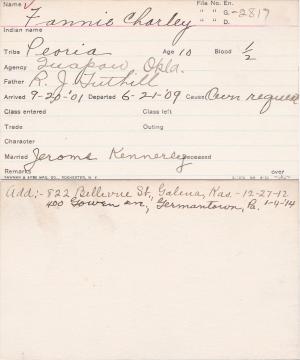 Name File No. En.
Fannie Charley " " C -2819
" " D.
Indian name
Tribe Peoria Age 10 Blood 1/2
Agency Quapaw, Okla.
Father R. J. Tuthill
Arrived 7-20-'01 Departed 6-21-'09 Cause Own request
Class entered Class left
Trade Outing
Character
Married Jerome Kennerley Deceased
Remarks over
Add;- 822 Bellevue St., Galena, Kas. -12-27-12
400 Gowen av., Germantown, Pa. 1-4-'14